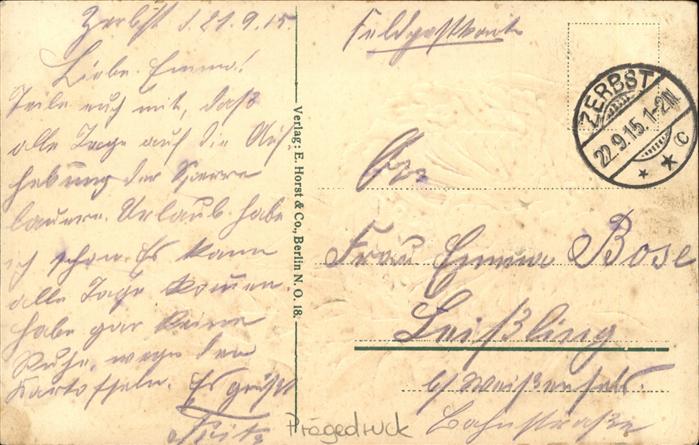 Zerbst d. 21.9.15.
Liebe Emma!
Teile euch mit, daß
alle Tage auf die Auf-
hebung der Sperre
lauern. Urlaub habe
ich schon. Es kann
alle Tage kommen.
Habe gar keine
Ruhe, wegen den
Kartoffeln. Es grüßt
Fritz
Verlag: E. Horst & Co., Berlin N. O. 18.
Feldpostkarte
ZERBST
22.9.15. 1-2N
* * c
An
Frau Emma Bose
Leißling
b/ Weißenfels.
Bahnstraße
Prägedruck